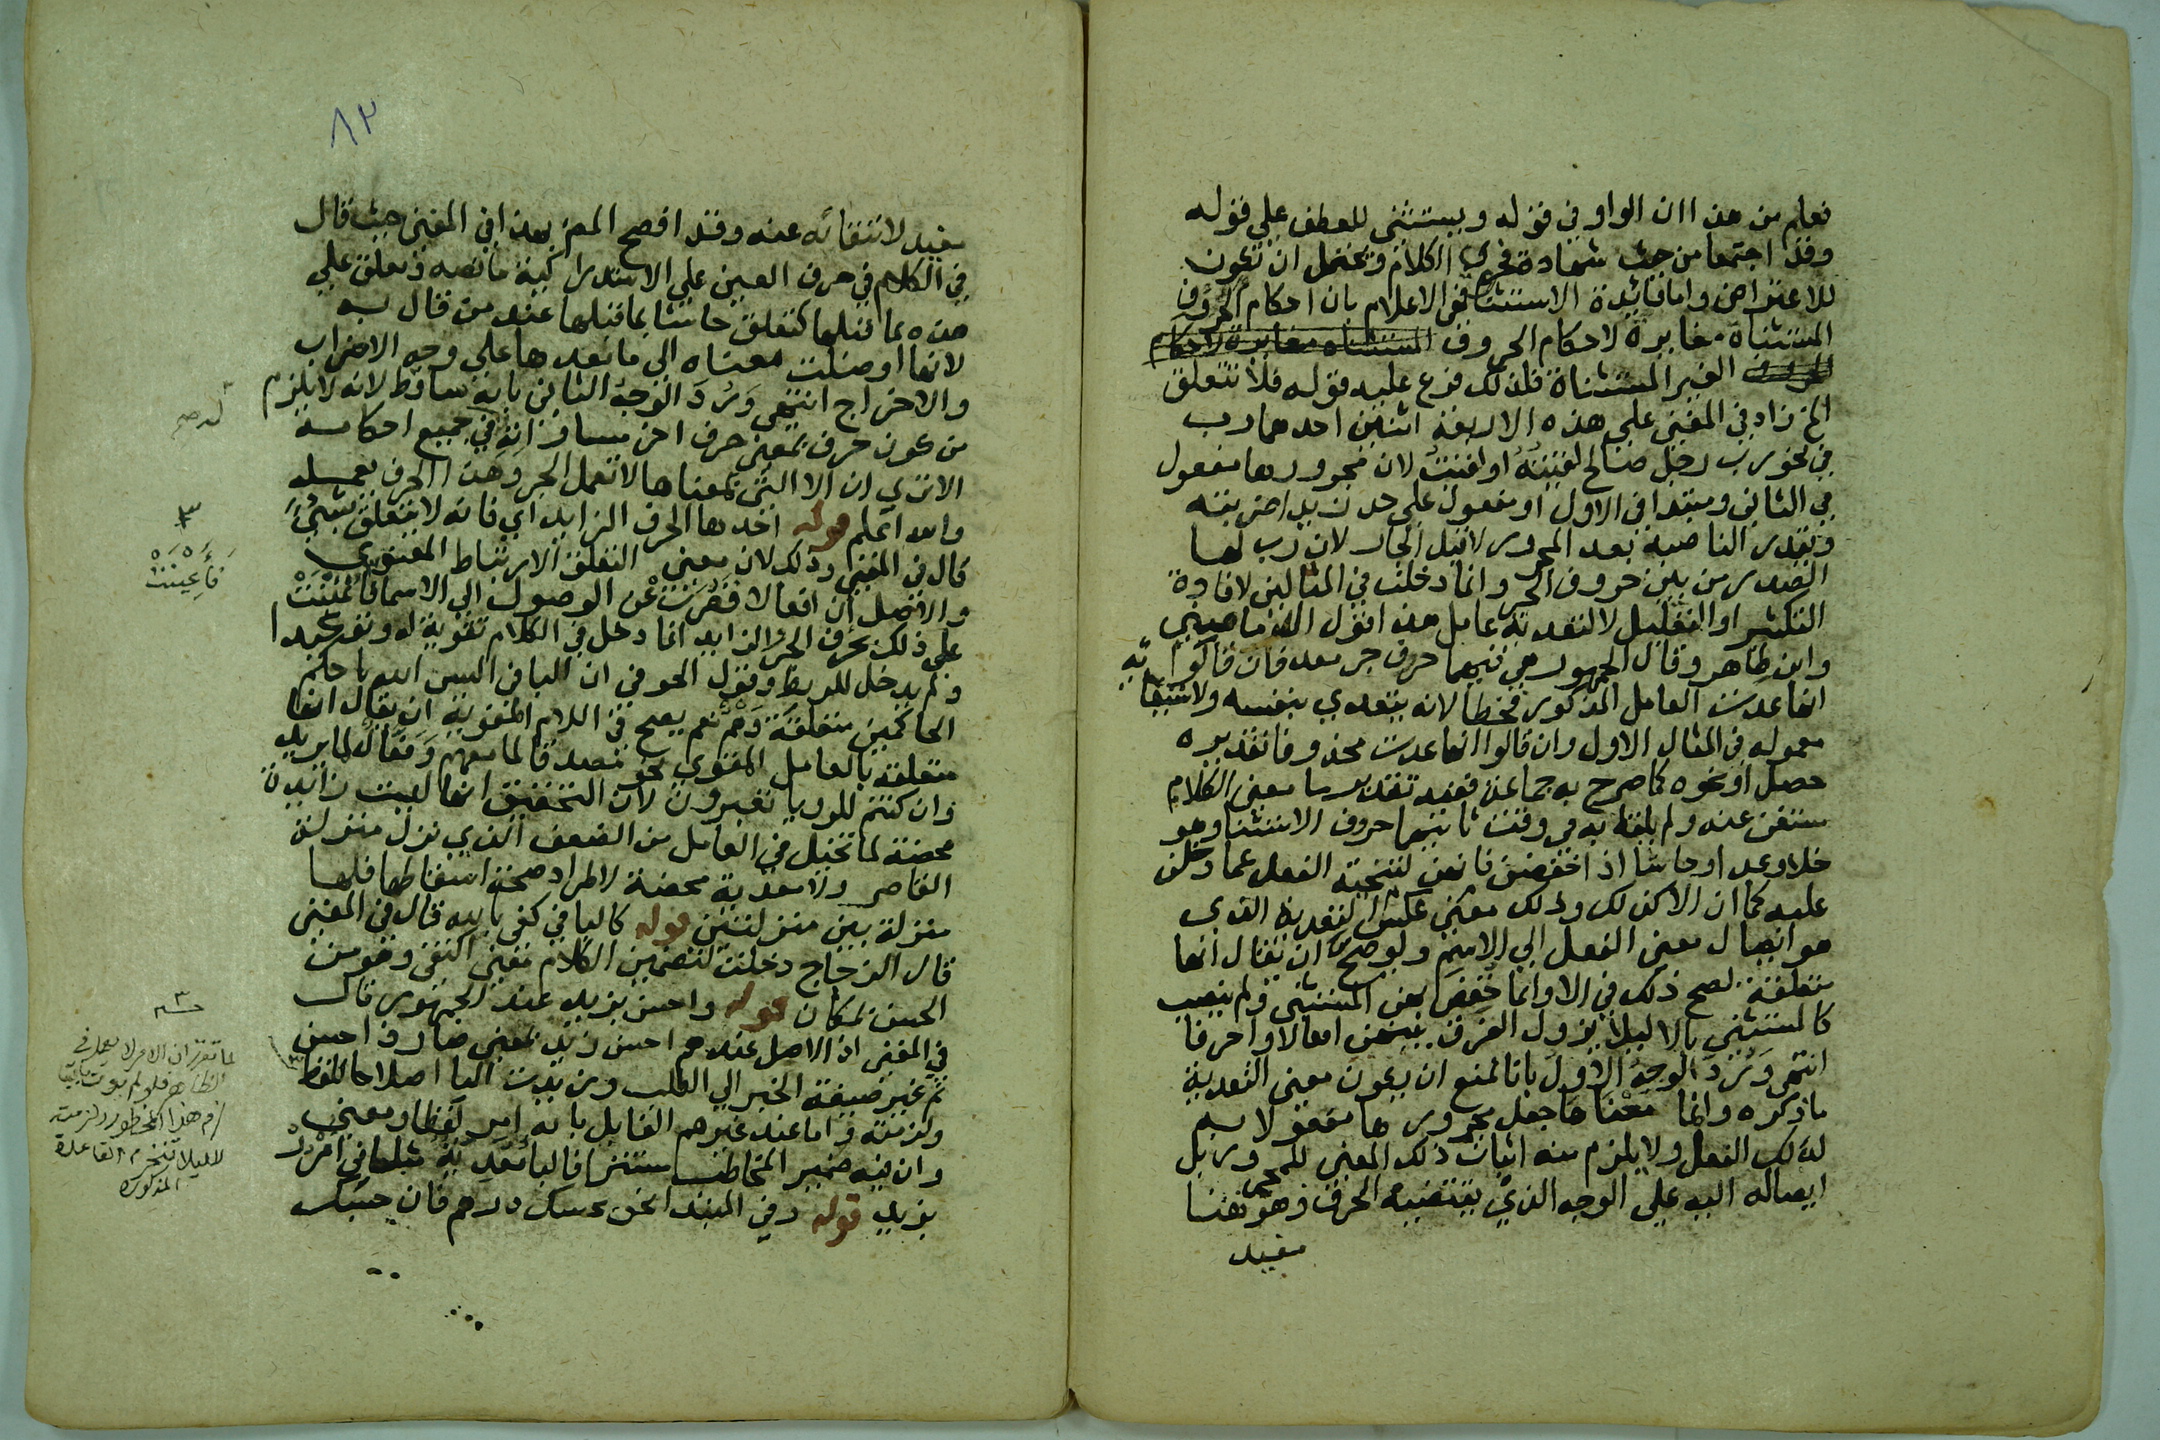 فعلم من هذا ان الواو في قوله ويستثنى للعطف على قوله
وقد اجتمعا من حيث شهادة فحوى الكلام ويحتمل ان تكون
للاعتراض واما فائدة الاستثنا فهو الاعلام بان احكام الحروف
المستثناة مغايرة لاحكام الحروف المستثناه مغايرة لاحكام
الحروف الغير المستثناة فلذلك فرع عليه قوله فلا تتعلق
الخ زاد في المغني على هذه الاربعة اثنين احدهما رب
في نحو رب رجل صالح لقيته او لقيت لان مجرورها مفعول
في الثاني ومبتدا في الاول او مفعول على حد زيدا ضربته
ويقدر الناصب بعد المجرور لا قبل الجار لان رب لها
الصدر من بين حروف الجر وانما دخلت في المثالين لافادة
التكثير او التقليل لا لتعدية عامل هذا قول الرماني
وابن طاهر وقال الجمهور هي فيهما حرف جر معد فان قالوا
انها عدت العامل المذكور فخطا لانه يتعدى بنفسه ولاستيفائه
معموله في المثال الاول وان قالوا انها عدت محذوفا تقديره
حصل او نحوه كما صرح به جماعة ففيه تقدير ما معنى الكلام
مستغن عنه ولم يلفظ به في وقت ثانيهما حروف الاستثنا وهو
خلا وعدا وحاشا اذا خفضن فانهن لتنحية الفعل عما دخلن
عليه كما ان الا كذلك وذلك عكس معنى التعدية الذي
هو ايصال معنى الفعل الى الاسم ولو صح ان يقال انها
متعلقة لصح ذلك في الا وانما خفض بهن المستثنى ولم ينصب
كالمستثنى بالا ليلا يزول الفرق بينهن افعالا واحرفا
انتهى ويرد الوجه الاول بانا نمنع ان يكون معنى التعدية
ما ذكره وانما معناها جعل مجرورها مفعولا به
لذلك الفعل ولا يلزم منه اثبات ذلك المعنى للمجرور بل
ايصاله اليه على الوجه الذي يقتضيه الحرف وهو هنا
مفيد
٨٢
مفيد لانتفائه عنه وقد افصح المص بهذا في المغني حيث قال
في الكلام في حرف العين على الاستدراكية ما نصه وتعلق على
هذه بما قبلها كتعلق حاشا بما قبلها عند من قال به
لانها اوصلت معناه الى ما بعدها على وجه الاضراب
والاخراج انتهى ويرد الوجه الثاني بانه ساقط لانه لا يلزم
من كون حرف بمعنى حرف اخر مساواته في جميع احكامه
الا ترى ان الا التي بمعناها لا تعمل الجر وهذا الحرف يعمله
والله اعلم قوله احدها الحرف الزايد اي فانه لا يتعلق بشيء
قال في المغني وذلك لان معنى التعلق الارتباط المعنوي
والاصل ان افعالا قصرت عن الوصول الى الاسما فاعينت
على ذلك بحرف الجر والزايد انما دخل في الكلام تقوية له وتوكيدا
ولم يدخل للربط وقول الحوفي ان البا في اليس الله باحكم
الحاكمين متعلقة وهم نعم يصح في اللام المقوية ان يقال انها
متعلقة بالعامل المقوي نحو مصدقا لما معهم وفعال لما يريد
وان كنتم للرويا تعبرون لان التحقيق انها ليست زائدة
محضة لما تخيل في العامل من الضعف الذي نزل منزلة
القاصر ولا معدية محضة لاطراد صحة اسقاطها فلها
منزلة بين منزلتين قوله كالبا في كفى بالله قال في المغني
قال الزجاج دخلت لتضمين الكلام معنى اكتفي وهو من
الحسن بمكان قوله واحسن بزيد عند الجمهور قال
في المغني اذ الاصل عندهم احسن زيد بمعنى صار ذا حسن
ثم غير صيغة الخبر الى الطلب وزيدت البا اصلاحا للفظ
ولزمته واما عند غيرهم القايل بانه امر لفظا ومعنى
وان فيه ضمير المخاطب مستترا فالبا معدية مثلها في امرر
بزيد قوله وفي المبتدا نحو بحسبك درهم فان حسبك
فَأُعِينَتْ
لما تقرر ان الامر لا يعمل في
الظاهر فلو لم يوت بالبا
لزم هذا المحظور ولزمت
لليلا تنخرم القاعدة
المذكورة